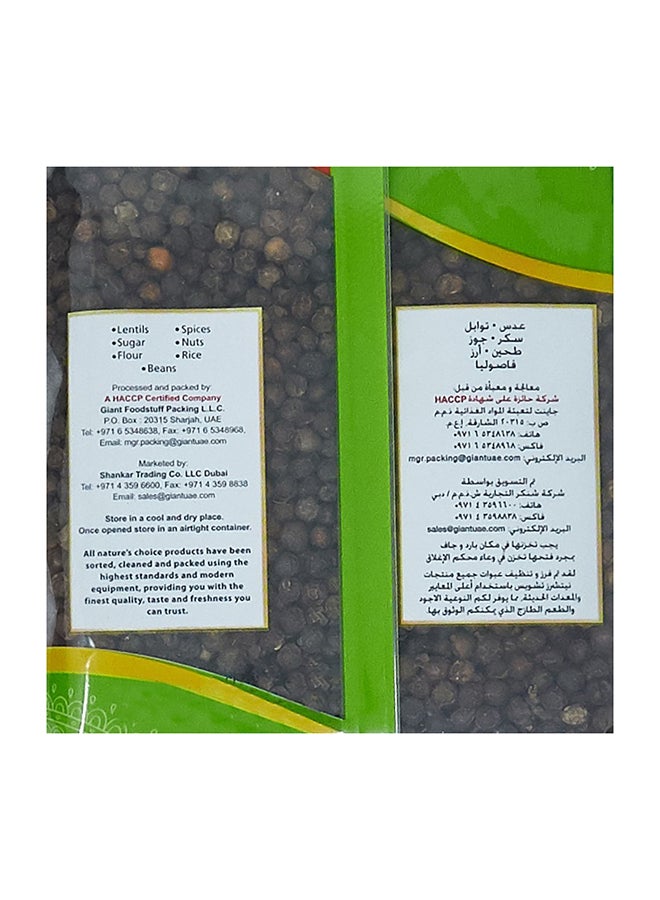 •Lentils •Spices
•Sugar •Nuts
•Flour •Rice
•Beans
Processed and packed by:
A HACCP Certified Company
Giant Foodstuff Packing L.L.C.
P.O. Box : 20315 Sharjah, UAE
Tel: +971 6 5348638, Fax: +971 6 5348968,
Email: mgr.packing@giantuae.com
Marketed by:
Shankar Trading Co. LLC Dubai
Tel: +971 4 359 6600, Fax: +971 4 359 8838
Email: sales@giantuae.com
Store in a cool and dry place.
Once opened store in an airtight container.
All nature's choice products have been
sorted, cleaned and packed using the
highest standards and modern
equipment, providing you with the
finest quality, taste and freshness you
can trust.
عدس • توابل
سكر • جوز
طحين • أرز
فاصوليا
معالجة و معبأة من قبل:
شركة حائزة على شهادة HACCP
جاينت لتعبئة المواد الغذائية ذ.م.م
ص ب: ٢٠٣١٥ الشارقة، إ.ع.م
هاتف: ٥٣٤٨٦٣٨ ٦ ٠٩٧١
فاكس: ٥٣٤٨٩٦٨ ٦ ٠٩٧١
البريد الإلكتروني: mgr.packing@giantuae.com
تم التسويق بواسطة
شركة شنكر التجارية ش.ذ.م.م / دبي
هاتف: ٣٥٩٦٦٠٠ ٤ ٠٩٧١
فاكس: ٣٥٩٨٨٣٨ ٤ ٠٩٧١
البريد الإلكتروني: sales@giantuae.com
يجب تخزنها في مكان بارد و جاف
بمجرد فتحها تخزن في وعاء محكم الإغلاق
لقد تم فرز و تنظيف عبوات جميع منتجات
نيتشرز تشويس باستخدام أعلى المعايير
والمعدات الحديثة، بما يوفر لكم النوعية الاجود
والطعم الطازج الذي يمكنكم الوثوق بها.